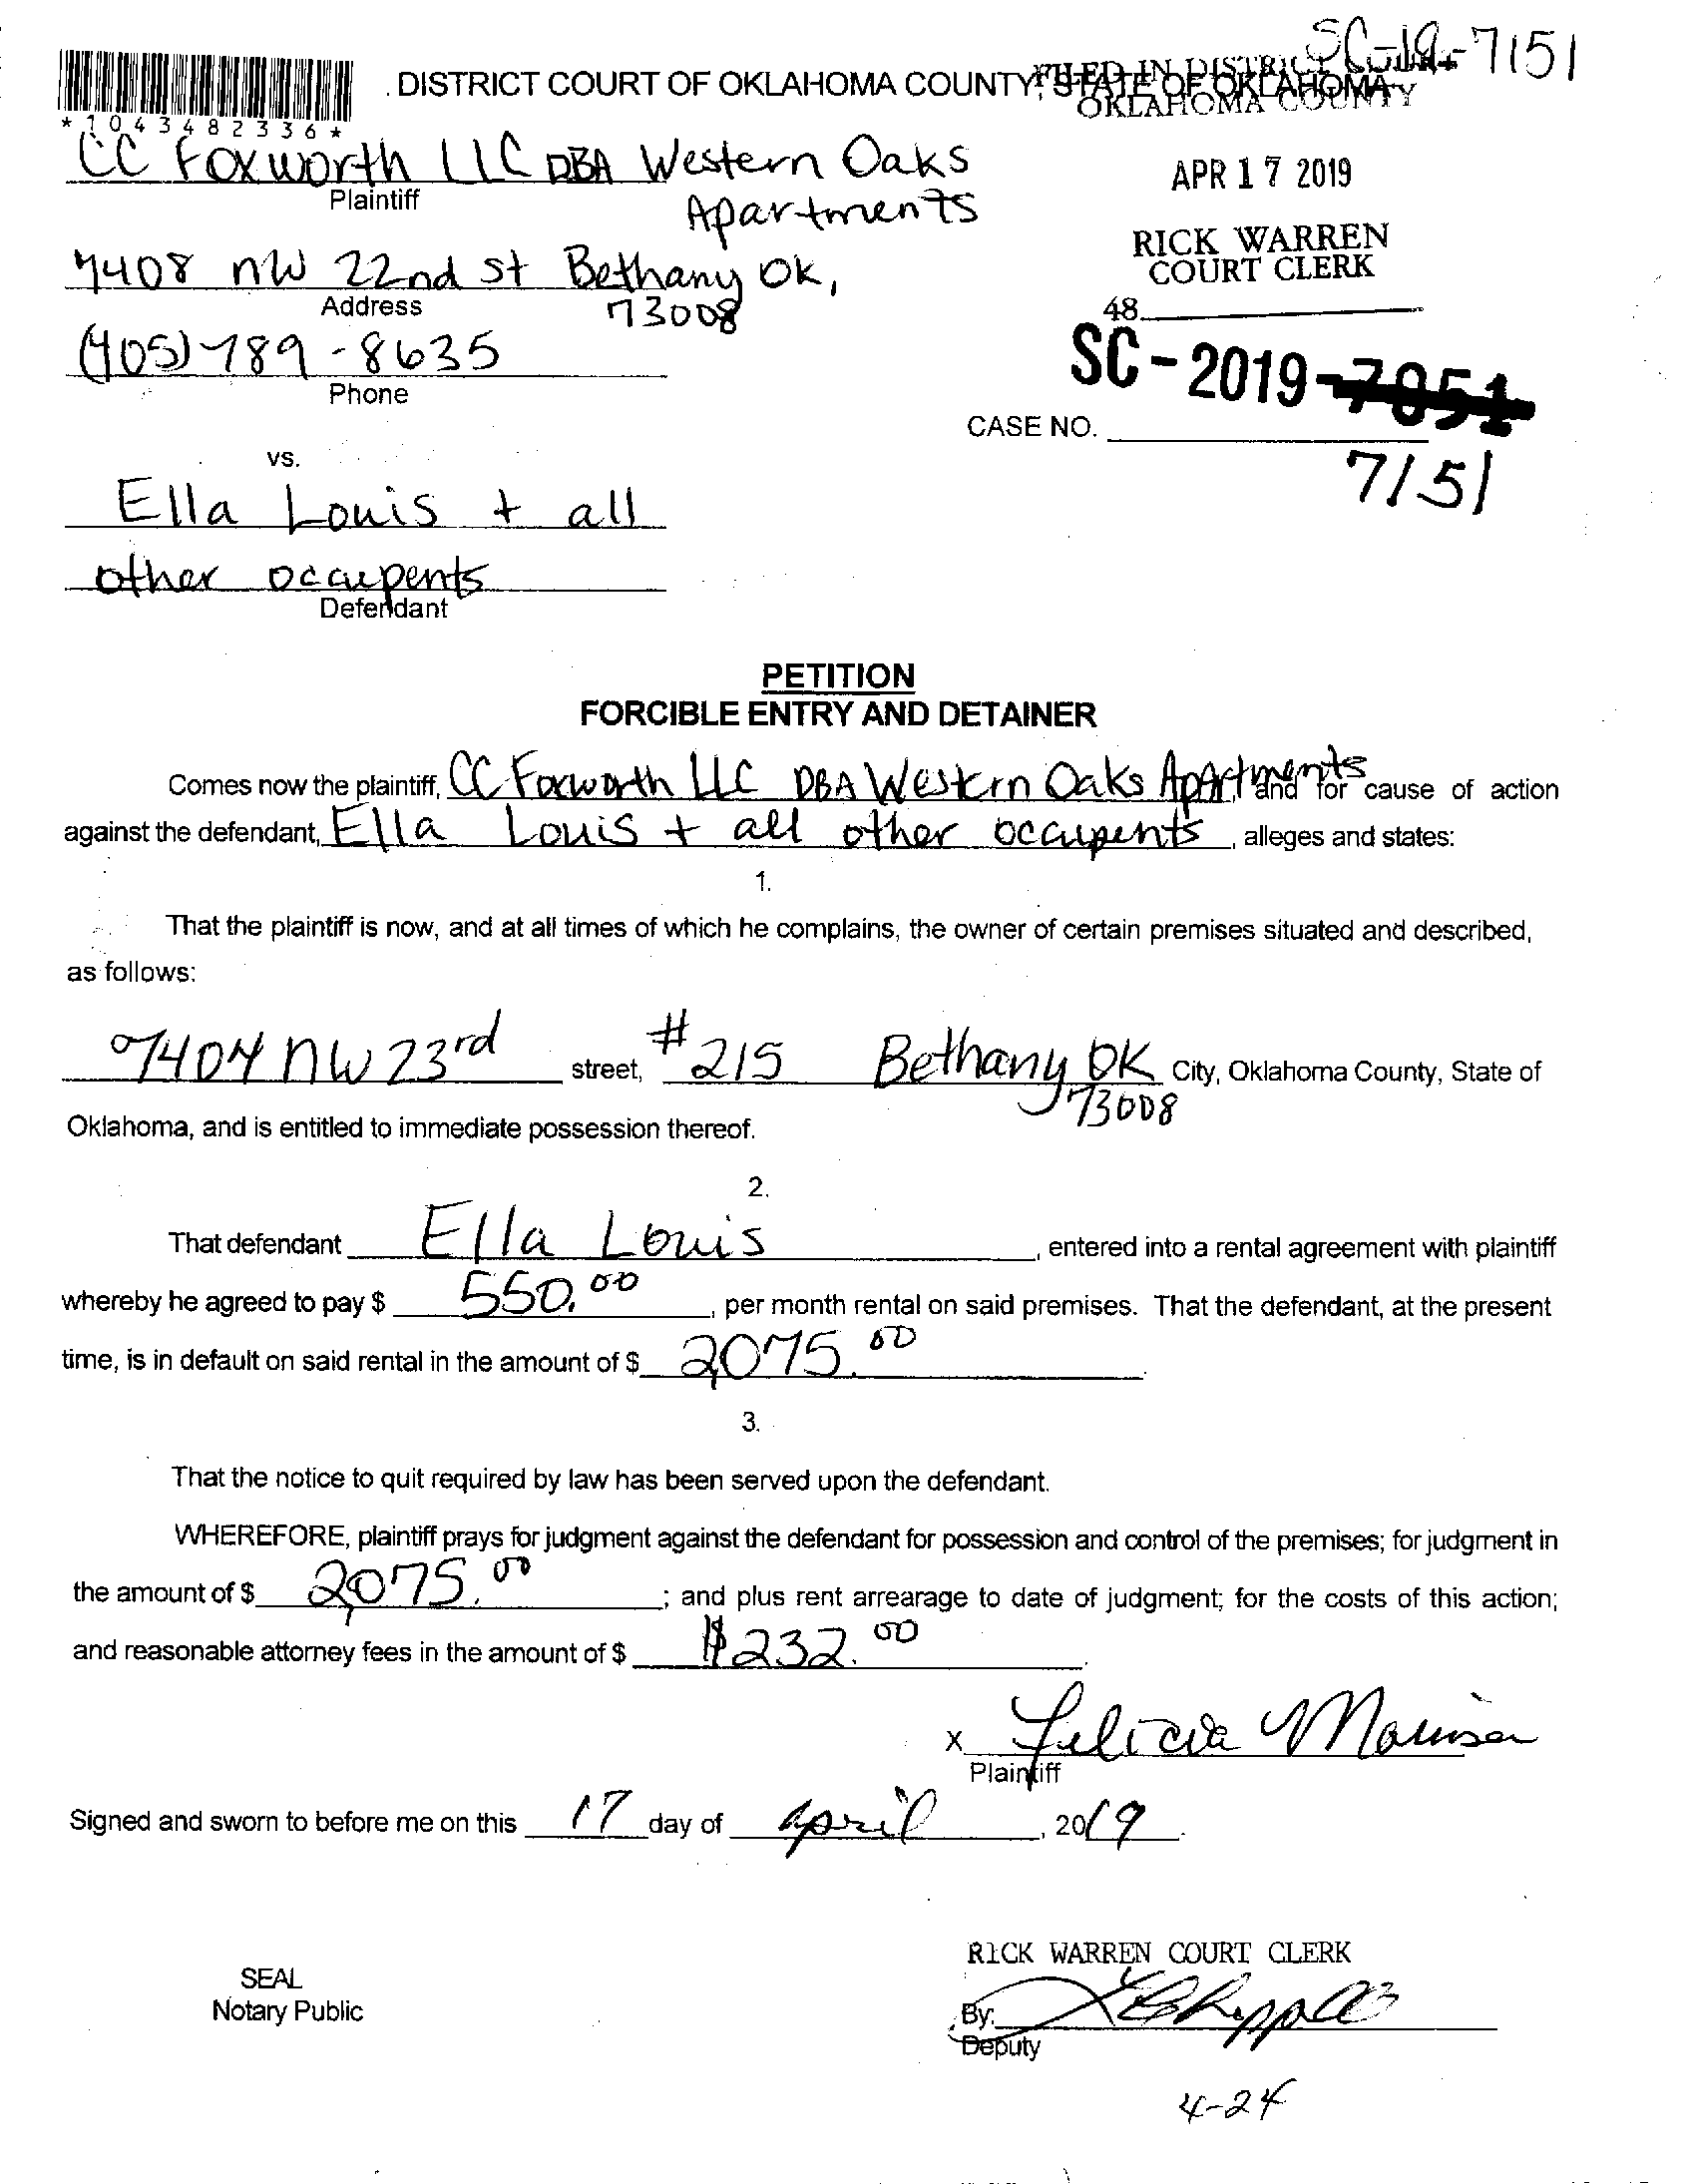 SC-19-7151
DISTRICT COURT OF OKLAHOMA COUNTY, STATE OF OKLAHOMA
FILED IN DISTRICT COURT
OKLAHOMA COUNTY
*1043482336*
CC Foxworth LLC DBA Western Oaks
Apartments
Plaintiff
APR 17 2019
RICK WARREN
COURT CLERK
7408 NW 22nd st Bethany OK,
73008
Address
48
(405)789-8635
Phone
SC-2019-7051
CASE NO.
7151
vs.
Ella Louis + all
other occupents
Defendant
PETITION
FORCIBLE ENTRY AND DETAINER
Comes now the plaintiff, CC Foxworth LLC DBA Western Oaks Apartments, and for cause of action
against the defendant, Ella Louis + all other occupents, alleges and states:
1.
That the plaintiff is now, and at all times of which he complains, the owner of certain premises situated and described,
as follows:
7404 NW 23rd street, #215 Bethany OK City, Oklahoma County, State of
73008
Oklahoma, and is entitled to immediate possession thereof.
2.
That defendant Ella Louis, entered into a rental agreement with plaintiff
whereby he agreed to pay $ 550.00, per month rental on said premises. That the defendant, at the present
time, is in default on said rental in the amount of $ 2,075.00.
3.
That the notice to quit required by law has been served upon the defendant.
WHEREFORE, plaintiff prays for judgment against the defendant for possession and control of the premises; for judgment in
the amount of $ 2,075.00; and plus rent arrearage to date of judgment; for the costs of this action;
and reasonable attorney fees in the amount of $ $232.00.
x Felicia
Plaintiff
Signed and sworn to before me on this 17 day of april, 2019.
RICK WARREN COURT CLERK
SEAL
Notary Public
By:
Deputy
4-24